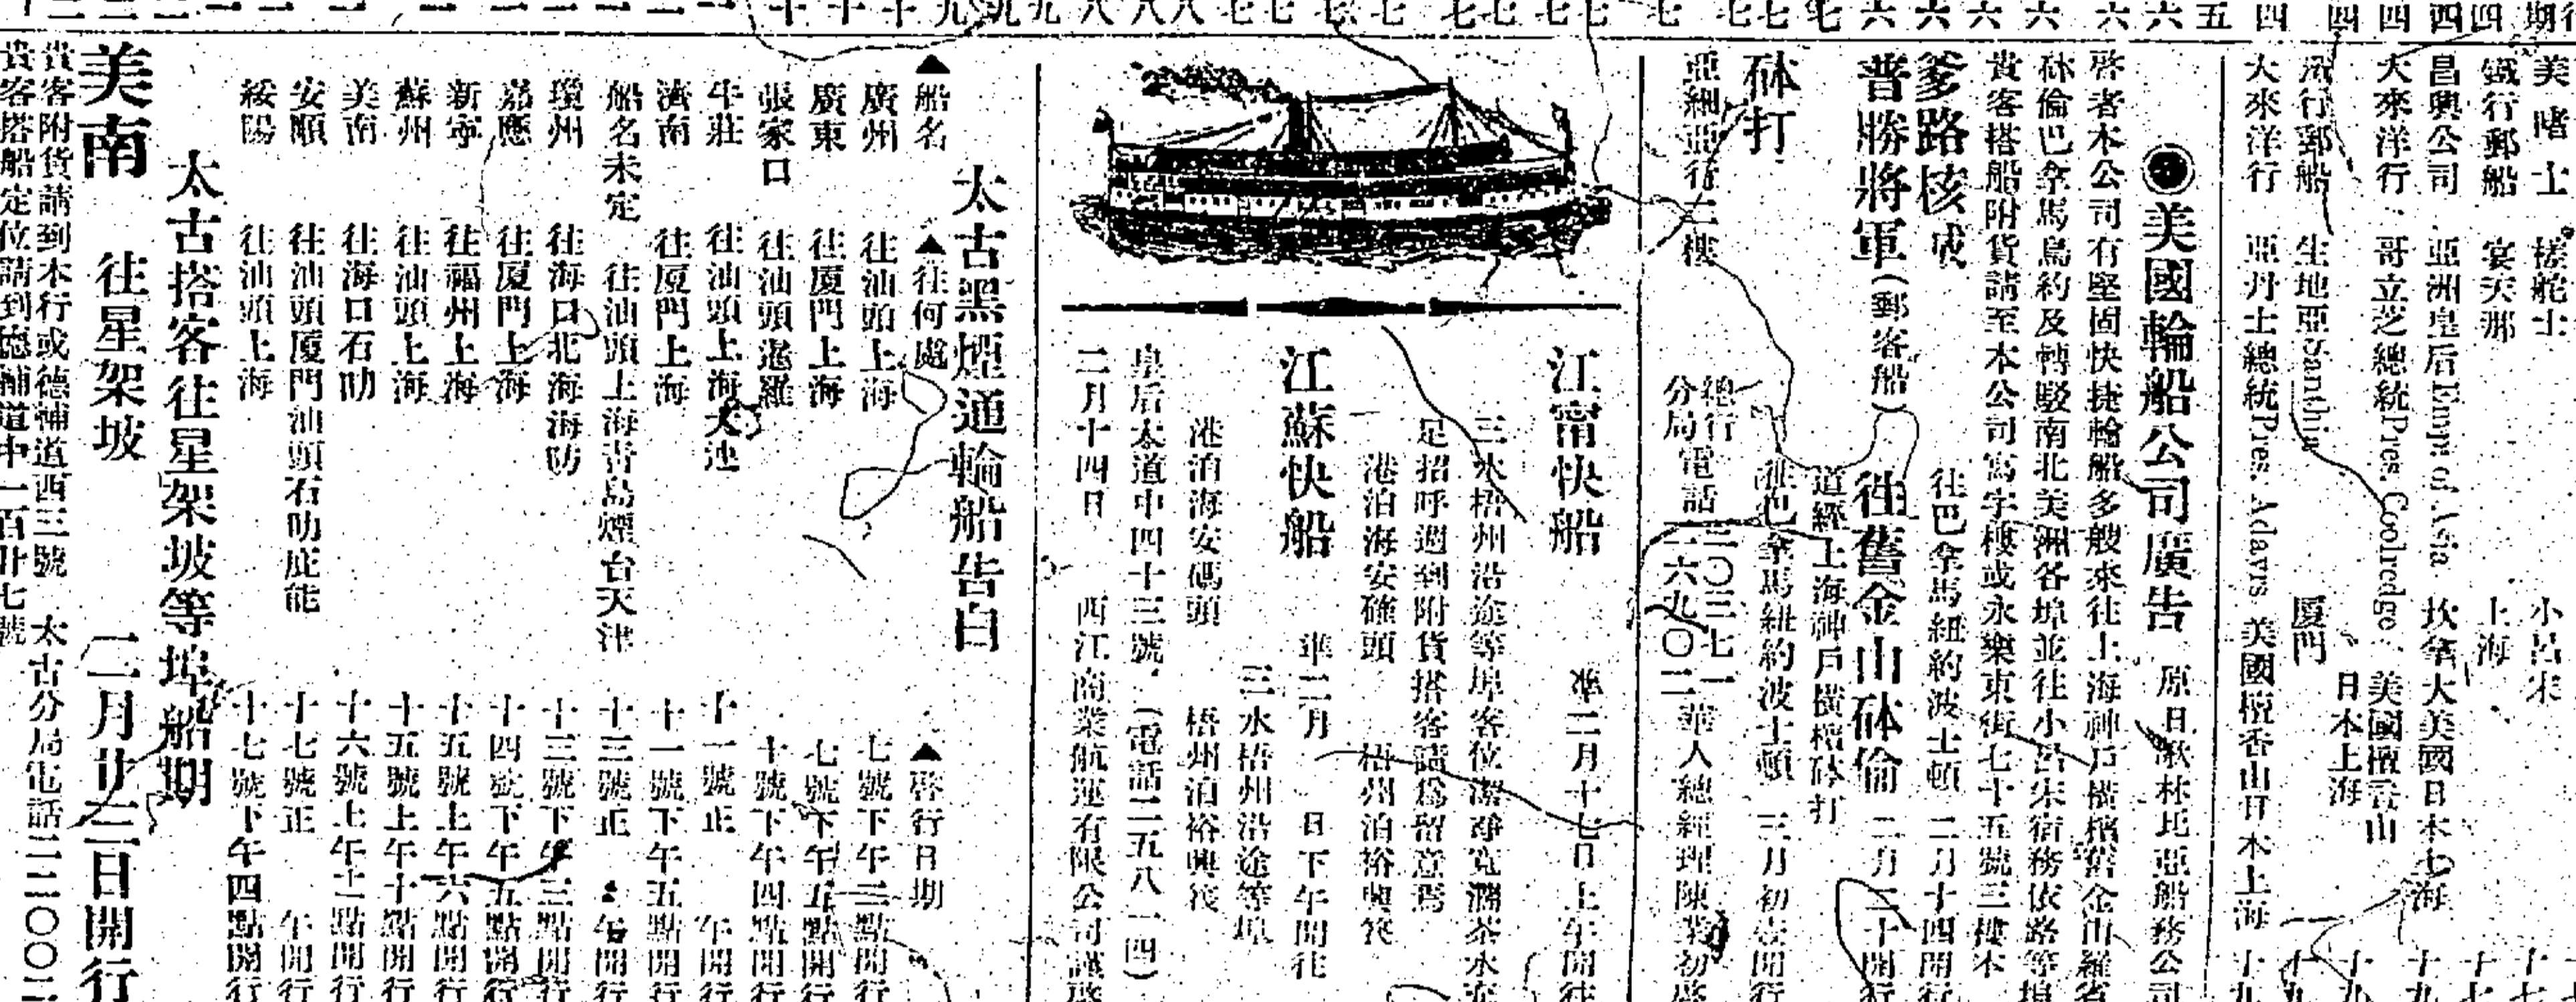 美嗜士 搓舵士 小呂宋
鐵行郵船 宴天那 上海
昌興公司 亞洲皇后Emps of Asia 坎拿大美國日本上海
大來洋行 哥立芝總統Pres. Cooledge 美國檀香山
日本上海
鐵行郵船 生地亞Santhia 厦門
大來洋行 亞丹士總統Pres. Adams 美國檀香山日本上海
美國輪船公司廣告 原日歐林比亞船務公司
啓者本公司有堅固快捷輪船多艘來往上海神戶橫檳舊金山羅省
砵倫巴拿馬鳥約及轉駁南北美洲各埠並往小呂宋宿務依路等埠
貴客搭船附貨請至本公司寫字樓或永樂東街七十五號三樓本
爹路核 往巴拿馬紐約波士頓 二月十四開行
普勝將軍(郵客船) 往舊金山砵倫 二月二十開行
道經上海神戶橫檳砵打
砵打 往巴拿馬紐約波士頓 三月初 開行
亞細亞行二樓 總行電話三〇三七一
分局電話二六九〇二 華人總經理陳業初啓
江甯快船 準二月十七日上午開往
三水梧州沿途等埠客位潔凈寬濶茶水
足招呼週到附貨搭客請爲留意焉
港泊海安碓頭 梧州泊裕興筏
江蘇快船 準二月 日下午開往
三水梧州沿途等埠
港泊海安碼頭 梧州泊裕興筏
皇后大道中四十三號(電話二五八一四)
二月十四日 西江商業航運有限公司謹啓
太古黑煙通輪船告白
▲船名 ▲往何處 ▲啓行日期
廣州 往汕頭上海 七號下午三點開行
廣東 往厦門上海 七號下午五點開行
張家口 往汕頭暹羅 十號下午四點開行
牛莊 往汕頭上海大連 十一號正午開行
濟南 往厦門上海 十一號下午五點開行
船名未定 往汕頭上海青島煙台天津 十三號正午開行
瓊州 往海口北海海防 十三號下午三點開行
嘉應 往厦門上海 十四號下午五點開行
新寧 往福州上海 十五號上午六點開行
蘇州 往汕頭上海 十五號上午十點開行
美南 往海口石叻 十六號上午十點開行
安順 往汕頭厦門汕頭石叻庇能 十七號正午開行
綏陽 往汕頭上海 十七號下午四點開行
太古搭客往星架坡等埠船期
美南 往星架坡 二月廿三日開行
貴客附貨請到本行或德輔道西三號 太古分局電話二二〇〇二
貴客搭船定位請到德輔道中一百卄七號